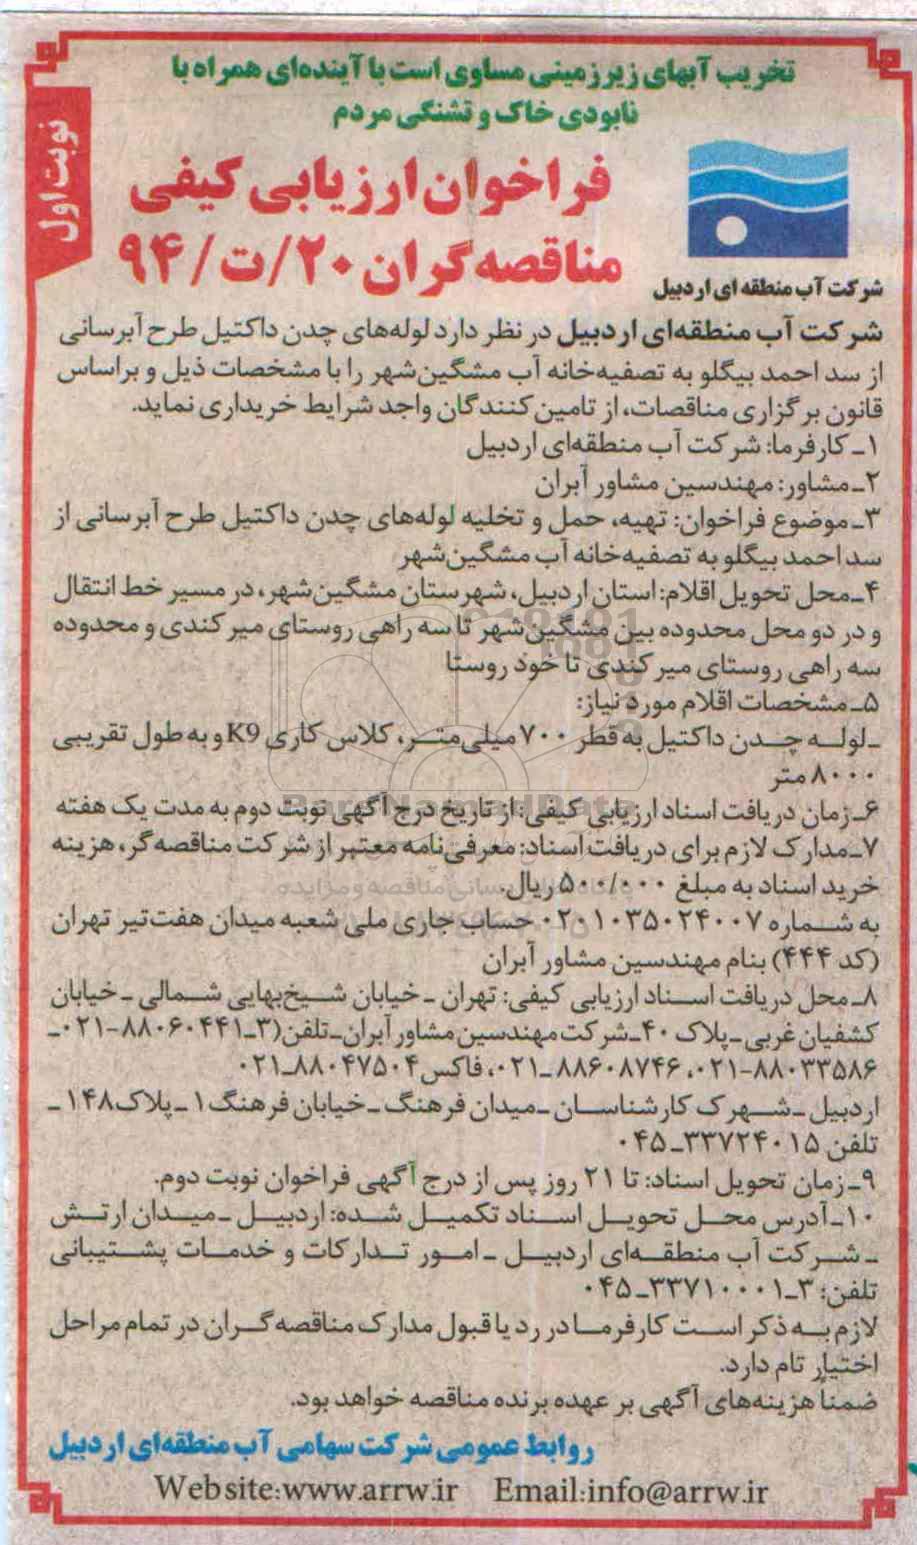 تخریب آبهای زیرزمینی مساوی است با آینده‌ای همراه با
نابودی خاک و تشنگی مردم
نوبت اول
فراخوان ارزیابی کیفی
مناقصه‌گران ۲۰/ت/۹۴
شرکت آب منطقه ای اردبیل
شرکت آب منطقه‌ای اردبیل در نظر دارد لوله‌های چدن داکتیل طرح آبرسانی
از سد احمد بیگلو به تصفیه‌خانه آب مشگین‌شهر را با مشخصات ذیل و براساس
قانون برگزاری مناقصات، از تامین‌کنندگان واجد شرایط خریداری نماید.
۱ـ کارفرما: شرکت آب منطقه‌ای اردبیل
۲ـ مشاور: مهندسین مشاور آبران
۳ـ موضوع فراخوان: تهیه، حمل و تخلیه لوله‌های چدن داکتیل طرح آبرسانی از
سد احمد بیگلو به تصفیه‌خانه آب مشگین‌شهر
۴ـ محل تحویل اقلام: استان اردبیل، شهرستان مشگین‌شهر، در مسیر خط انتقال
و در دو محل محدوده بین مشگین‌شهر تا سه راهی روستای میرکندی و محدوده
سه راهی روستای میرکندی تا خود روستا
۵ـ مشخصات اقلام مورد نیاز:
ـ لوله چدن داکتیل به قطر ۷۰۰ میلی‌متر، کلاس کاری K9 و به طول تقریبی
۸۰۰۰ متر
۶ـ زمان دریافت اسناد ارزیابی کیفی: از تاریخ درج آگهی نوبت دوم به مدت یک هفته
۷ـ مدارک لازم برای دریافت اسناد: معرفی‌نامه معتبر از شرکت مناقصه‌گر، هزینه
خرید اسناد به مبلغ ۵۰۰/۰۰۰ ریال.
به شماره ۰۲۰۱۰۳۵۰۲۴۰۰۷ حساب جاری ملی شعبه میدان هفت‌تیر تهران
(کد ۴۴۴) بنام مهندسین مشاور آبران
۸ـ محل دریافت اسناد ارزیابی کیفی: تهران ـ خیابان شیخ‌بهایی شمالی ـ خیابان
کشفیان غربی ـ پلاک ۴۰ ـ شرکت مهندسین مشاور آبران ـ تلفن (۳ـ۸۸۰۶۰۴۴۱-۰۲۱ـ
۸۸۰۳۳۵۸۶-۰۲۱، ۸۸۶۰۸۷۴۶ـ۰۲۱، فاکس ۸۸۰۴۷۵۰۴ـ۰۲۱
اردبیل ـ شهرک کارشناسان ـ میدان فرهنگ ـ خیابان فرهنگ ۱ ـ پلاک ۱۴۸ ـ
تلفن ۳۳۷۲۴۰۱۵ـ۰۴۵
۹ـ زمان تحویل اسناد: تا ۲۱ روز پس از درج آگهی فراخوان نوبت دوم.
۱۰ـ آدرس محل تحویل اسناد تکمیل شده: اردبیل ـ میدان ارتش
ـ شرکت آب منطقه‌ای اردبیل ـ امور تدارکات و خدمات پشتیبانی
تلفن: ۳ـ۳۳۷۱۰۰۰۱ـ۰۴۵
لازم به ذکر است کارفرما در رد یا قبول مدارک مناقصه‌گران در تمام مراحل
اختیار تام دارد.
ضمناً هزینه‌های آگهی بر عهده برنده مناقصه خواهد بود.
روابط عمومی شرکت سهامی آب منطقه‌ای اردبیل
Website:www.arrw.ir Email:info@arrw.ir